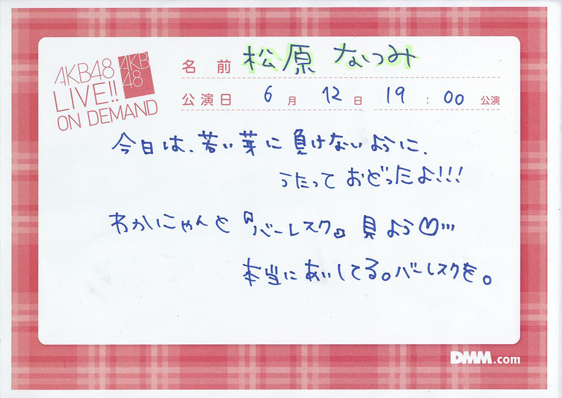 AKB48
LIVE!!
ON DEMAND
AKB
48
名前 松原 なつみ
公演日 6月 12日 19:00 公演
今日は、若い芽に負けないように、
うたって おどったよ!!!
わかにゃんと『バーレスク』見よう♡…
本当にあいしてる。バーレスクを。
DMM.com